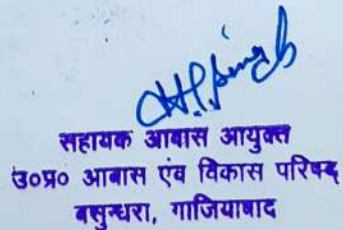 सहायक आवास आयुक्त
उ०प्र० आवास एंव विकास परिषद्
बसुन्धरा, गाजियाबाद